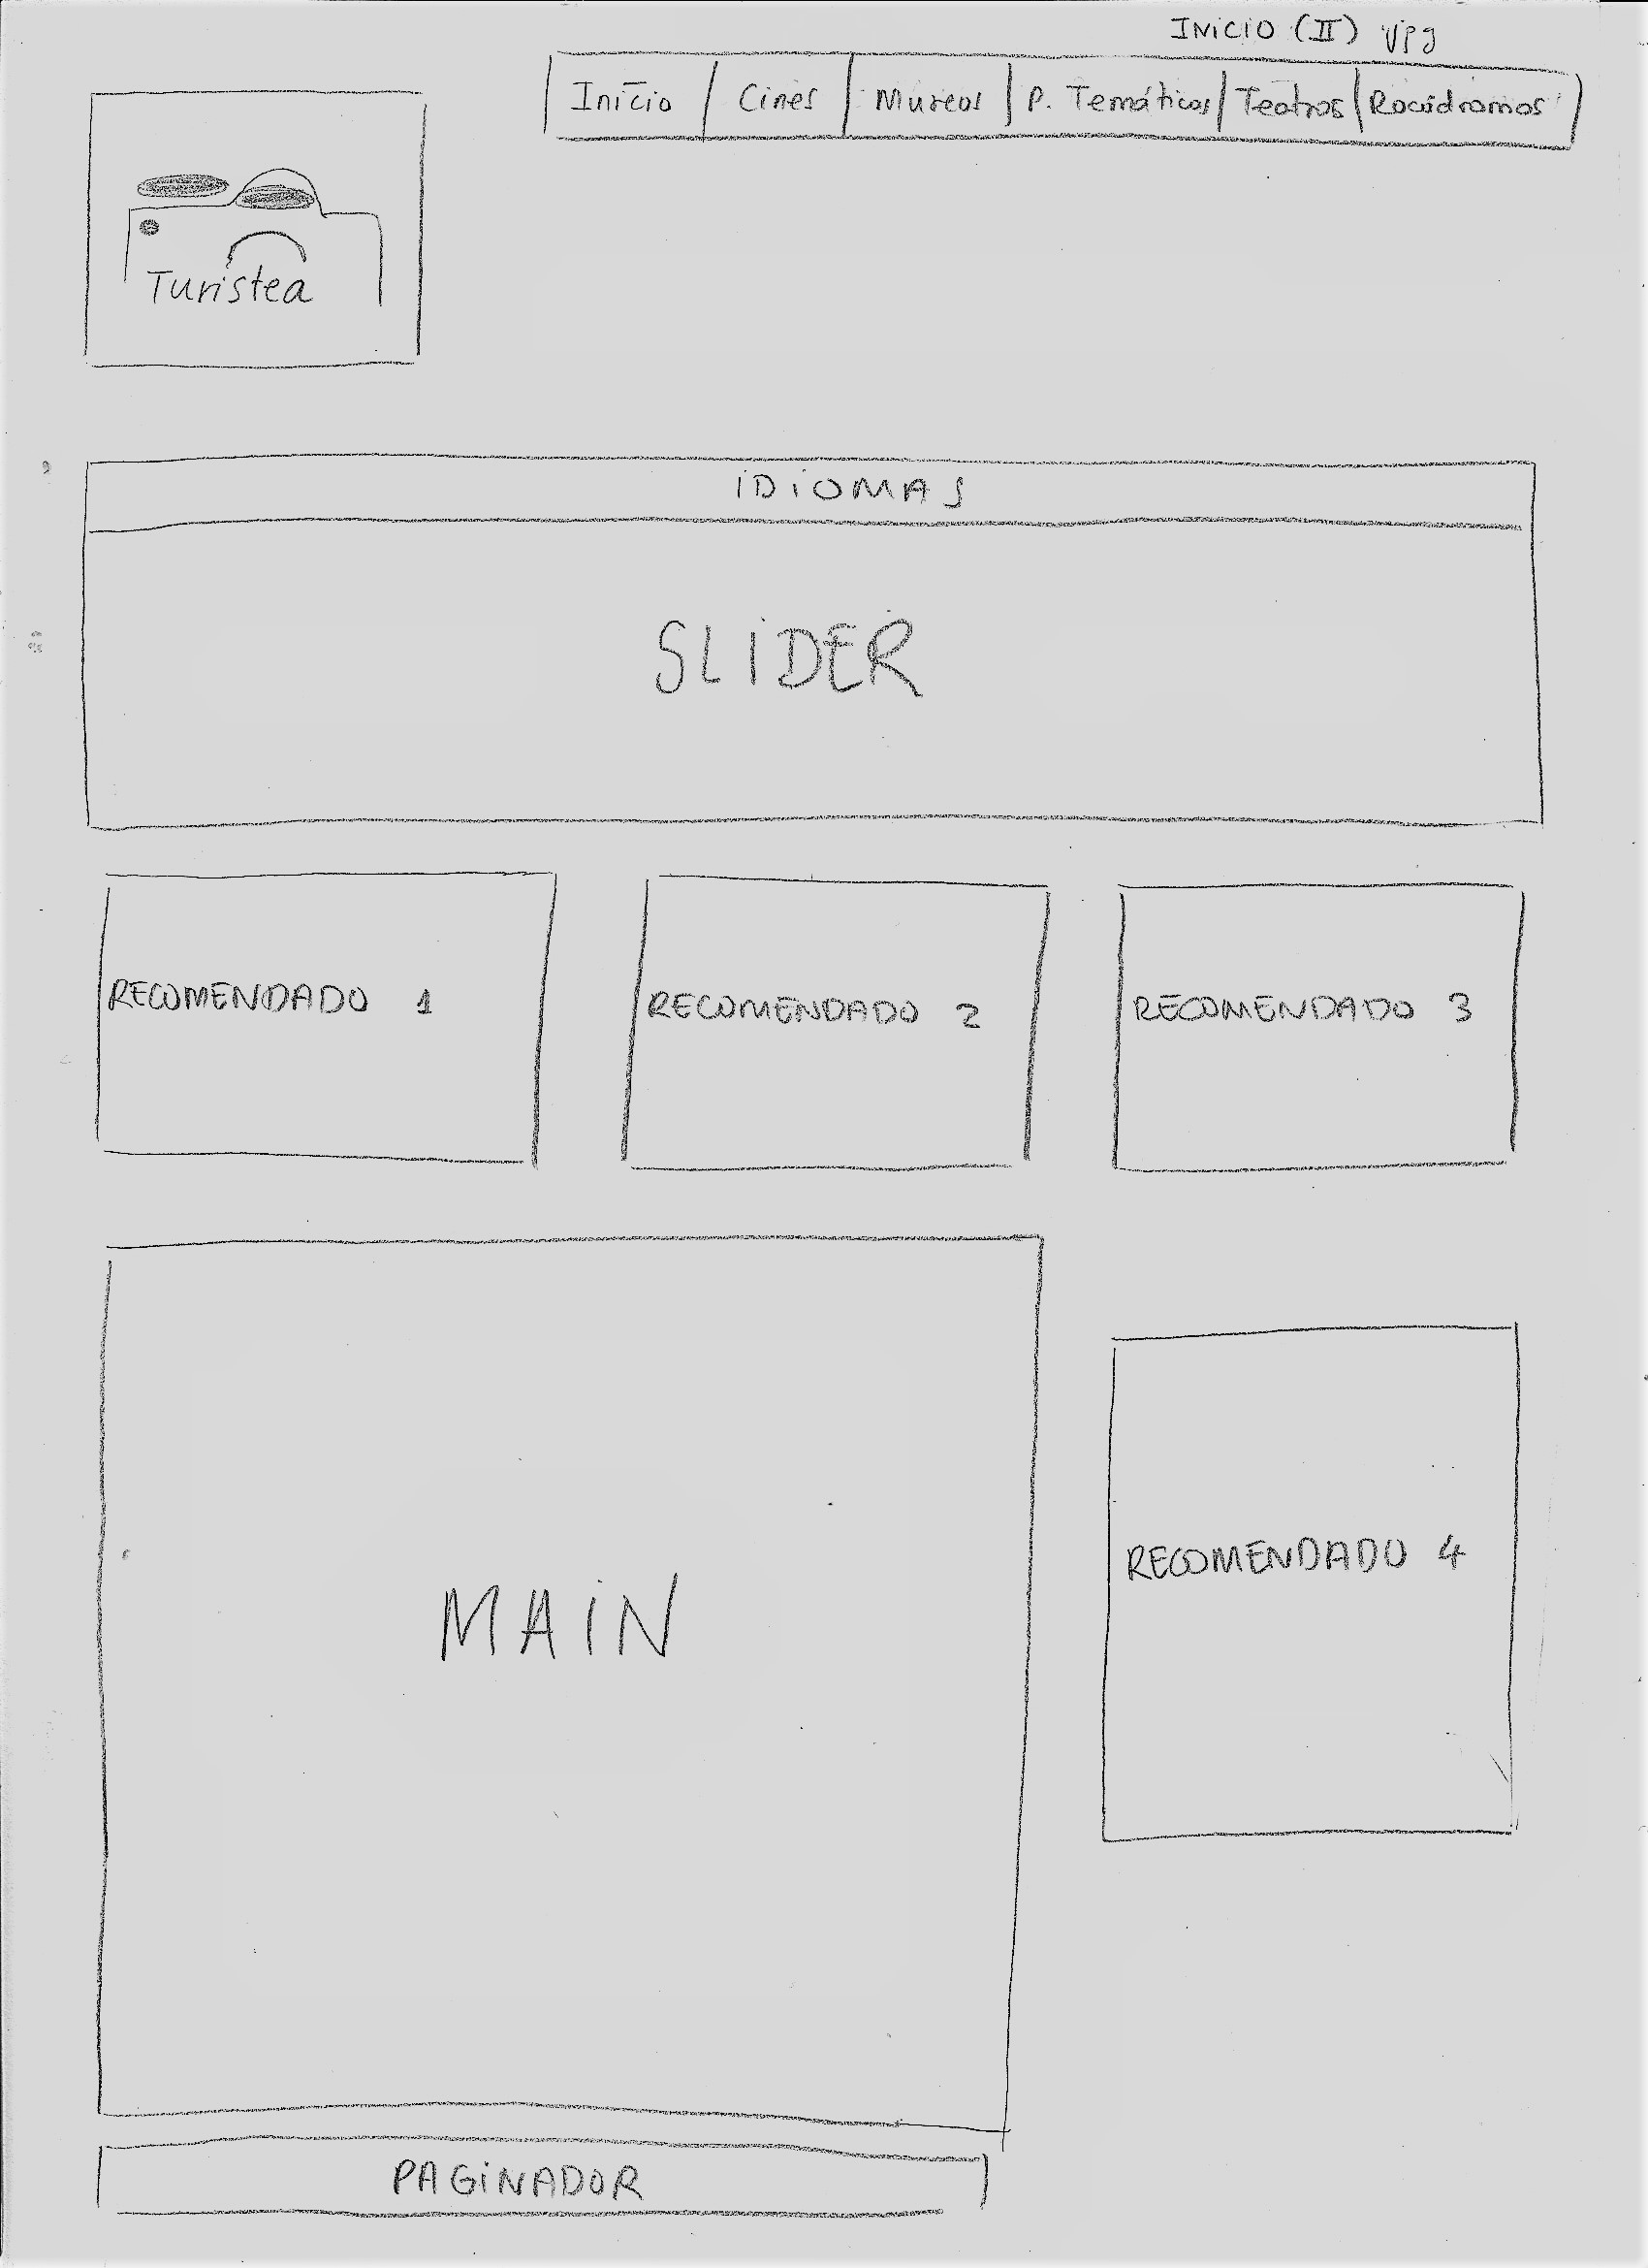 INICIO (II) Vpg
Inicio Cines Museos P. Temáticos Teatros Rocódromos
Turistea
IDIOMAS
SLIDER
RECOMENDADO 1 RECOMENDADO 2 RECOMENDADO 3
MAIN
RECOMENDADO 4
PAGINADOR